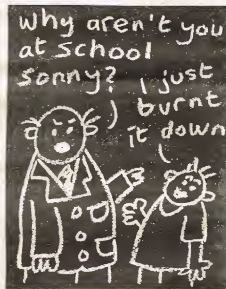 why aren't you
at school
sonny?
I just
burnt
it down